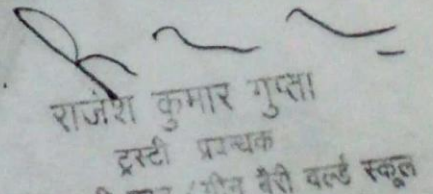 राजेश कुमार गुप्ता
ट्रस्टी प्रबन्धक
वैरी वर्ल्ड स्कूल